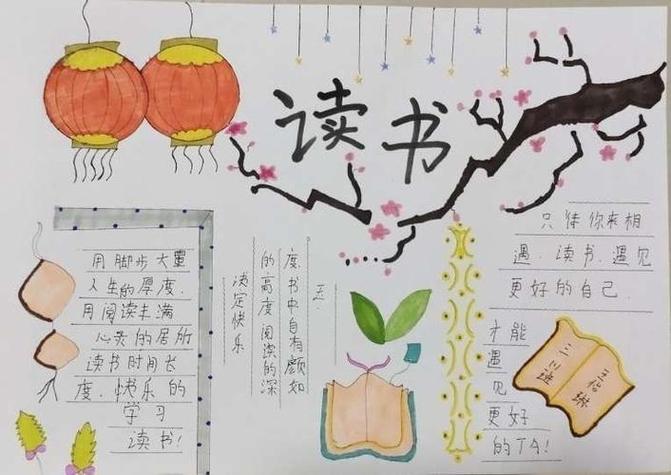 读书
用脚步大量
人生的厚度.
用阅读丰满
心灵的居所
读书时间长
度、快乐的
学习
读书!
决定快乐
的高度阅读的深
度.书中自有颜如
玉.
只待你来相
遇.读书.遇见
更好的自己.
才能
遇
见
更好
的TA!